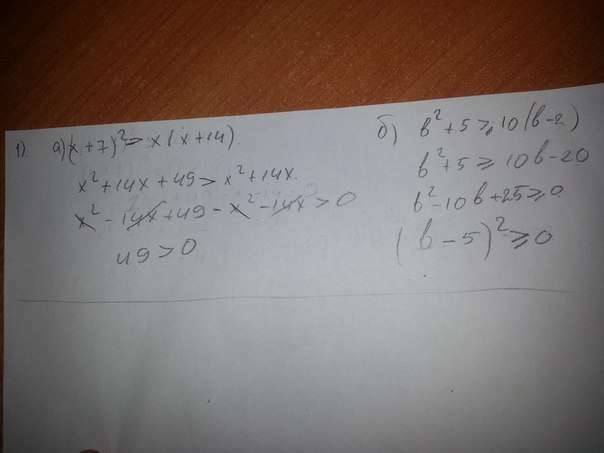 1). а) (x+7)² > x(x+14).
x²+14x+49 > x²+14x.
x² - 14x + 49 - x² - 14x > 0
49 > 0
б) b²+5 ≥ 10(b-2)
b²+5 ≥ 10b-20
b²-10b+25 ≥ 0
(b-5)² ≥ 0